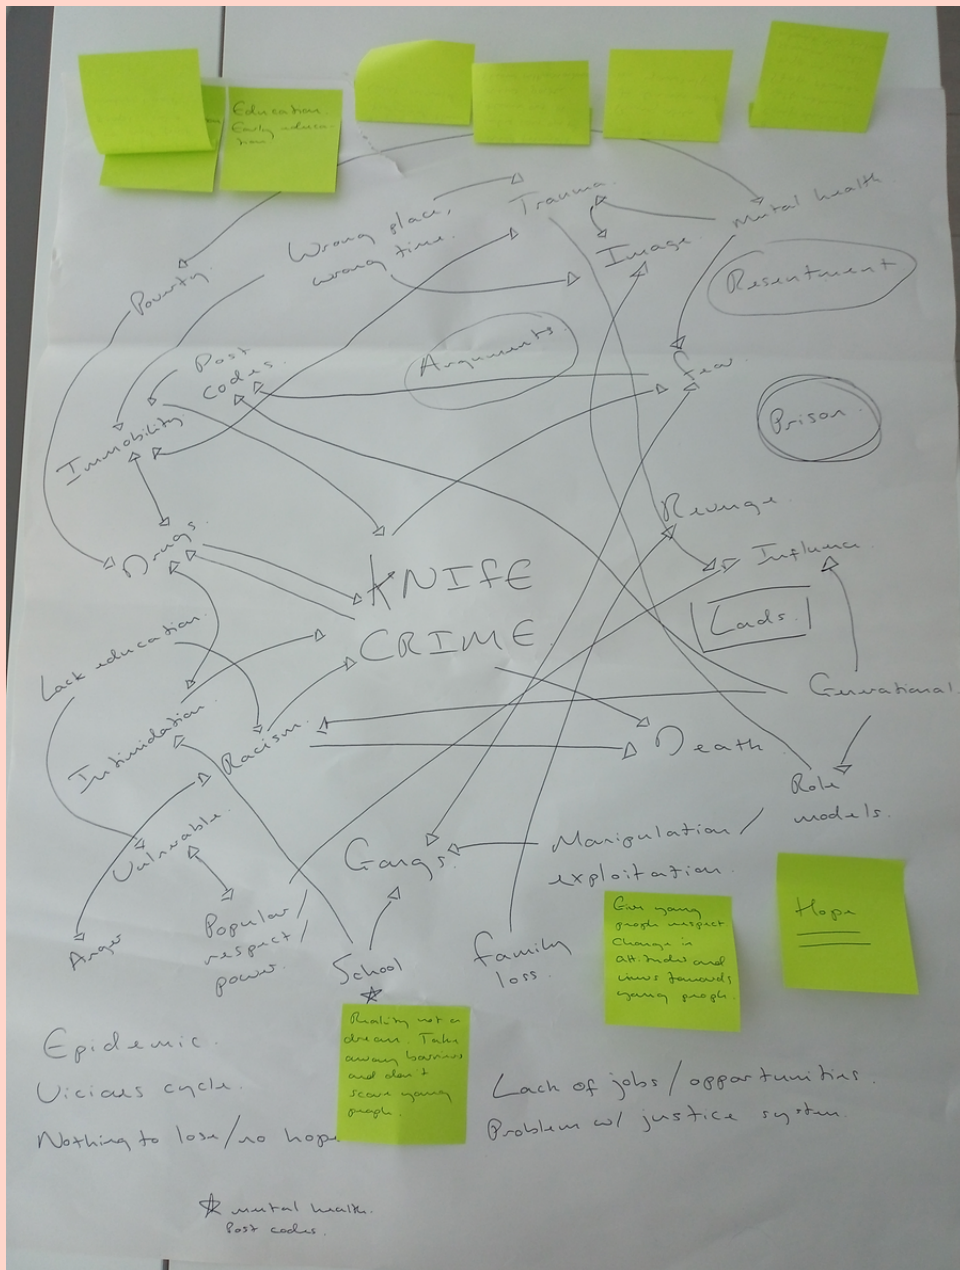 Education.
Early educa-
tion
Wrong place,
wrong time.
Trauma.
Mental health.
Image.
Resentment
Poverty.
Post
codes.
Arguments.
Fear.
Immobility.
Prison.
Revenge.
Drugs.
Influence.
KNIFE
CRIME
Lads.
Lack education.
Generational.
Intimidation.
Racism.
Death.
Role
models.
Vulnerable.
Gangs.
Manipulation/
exploitation.
Anger
Popular/
respect/
power.
School
Family
loss.
Give young
people respect
Change in
attitudes and
views towards
young people.
Hope
Reality not a
dream. Take
away barriers
and don't
scare young
people.
Epidemic.
Vicious cycle.
Nothing to lose/no hope
Lack of jobs/opportunities.
Problem w/ justice system.
mental health.
Post codes.